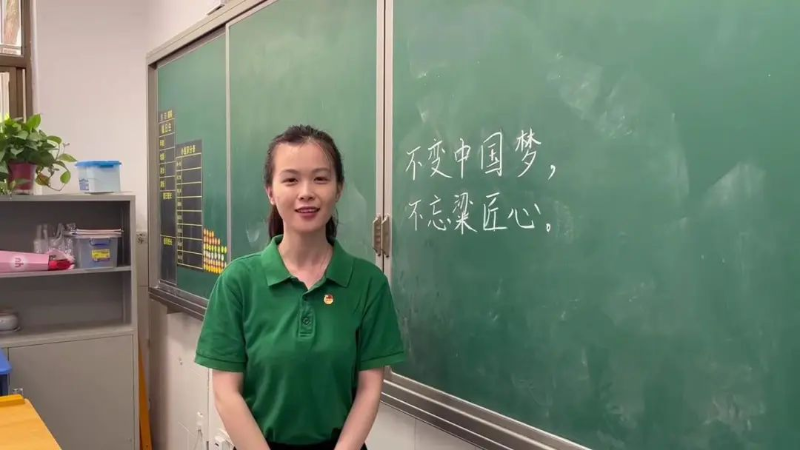 不变中国梦，
不忘粱匠心。